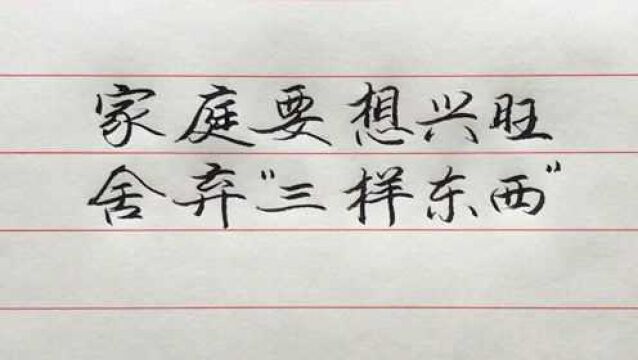 家庭要想兴旺
舍弃"三样东西"